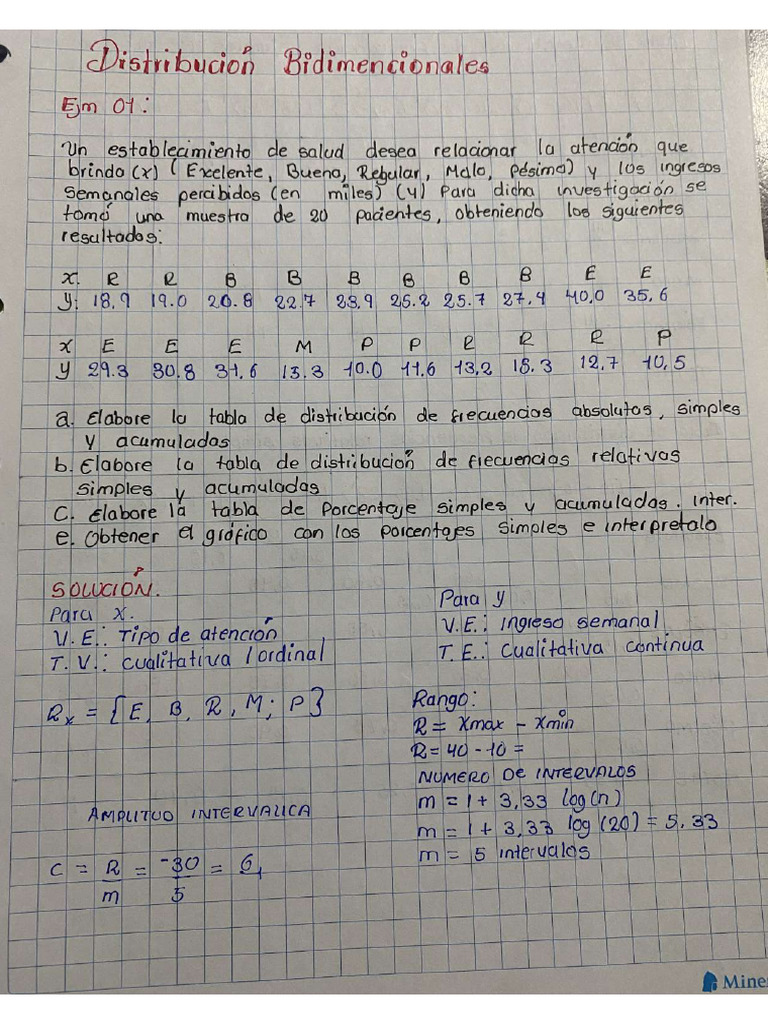 Distribución Bidimencionales
Ejm 01:
Un establecimiento de salud desea relacionar la atención que
brinda (x) (Exelente, Buena, Regular, Malo, Pésimo) y los ingresos
semanales percibidos (en miles) (y) Para dicha investigación se
tomó una muestra de 20 pacientes, obteniendo los siguientes
resultados:
x. R R B B B B B B E E
y: 18.9 19.0 20.8 22.7 23.9 25.2 25.7 27.4 40.0 35.6
x E E E M P P R R R P
y 29.3 30.8 31.6 13.3 10.0 11.6 13,2 15.3 12,7 10,5
a. Elabore la tabla de distribución de frecuencias absolutas, simples
y acumuladas
b. Elabore la tabla de distribución de frecuencias relativas
simples y acumuladas
C. Elabore la tabla de Porcentaje simples y acumuladas. inter.
e. Obtener el gráfico con los porcentajes simples e interpretalo
SOLUCIÓN.
Para x.
V.E.: Tipo de atención
T.V.: Cualitativa / ordinal
Rx = {E, B, R, M; P}
Para y
V.E.: Ingreso semanal
T.E.: Cualitativa continua
Rango:
R = Xmax - Xmin
R = 40 - 10 =
NUMERO DE INTERVALOS
m = 1 + 3,33 log(n)
m = 1 + 3,33 log (20) = 5,33
m = 5 intervalos
AMPLITUD INTERVALICA
C = R/m = -30/5 = 6,